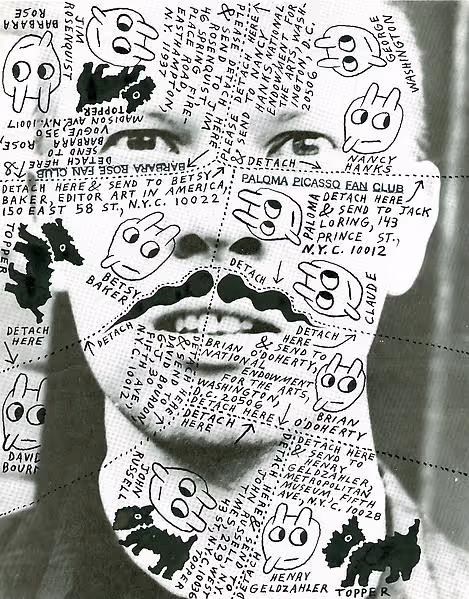 BARBARA
ROSE
JIM
ROSENQUIST
TOPPER
DETACH HERE
& SEND TO
BARBARA ROSE,
VOGUE, 350
MADISON AVE, N.Y. 10017
BARBARA ROSE FAN CLUB
PLEASE DETACH HERE
& SEND TO JIM
ROSENQUIST
46 SPRING
PLACE RD FIRE-
EASTHAMPTON,
N.Y. 11937
PLEASE DETACH HERE
& SEND TO NANCY
HANKS, NATIONAL
ENDOWMENT FOR
THE ARTS, WASH-
INGTON, D.C.
20506
GEORGE
WASHINGTON
NANCY
HANKS
DETACH
PALOMA PICASSO FAN CLUB
DETACH HERE & SEND TO BETSY
BAKER, EDITOR ART IN AMERICA,
150 EAST 58 ST., N.Y.C. 10022
PALOMA
DETACH HERE
& SEND TO JACK
LORING, 143
PRINCE ST.,
N.Y.C. 10012
TOPPER
BETSY
BAKER
DETACH
CLAUDE
DETACH
HERE
DETACH
DETACH
HERE
& SEND TO
BRIAN O'DOHERTY,
NATIONAL
ENDOWMENT
FOR THE ARTS,
WASHINGTON,
D.C. 20506
DETACH HERE
& SEND TO
DAVID BOURDON
FIFTH AVE,
N.Y.C. 10012
BRIAN
O'DOHERTY
DETACH HERE
DETACH
HERE
DAVID
BOURN
DETACH HERE
& SEND TO
HENRY
GELDZAHLER,
METROPOLITAN
MUSEUM, FIFTH
AVE, N.Y.C. 10028
JOHN
RUSSELL
DETACH HERE
& SEND TO
JOHN RUSSELL
229 WEST
43 ST. NYC 10036
TOPPER
HENRY
GELDZAHLER
TOPPER